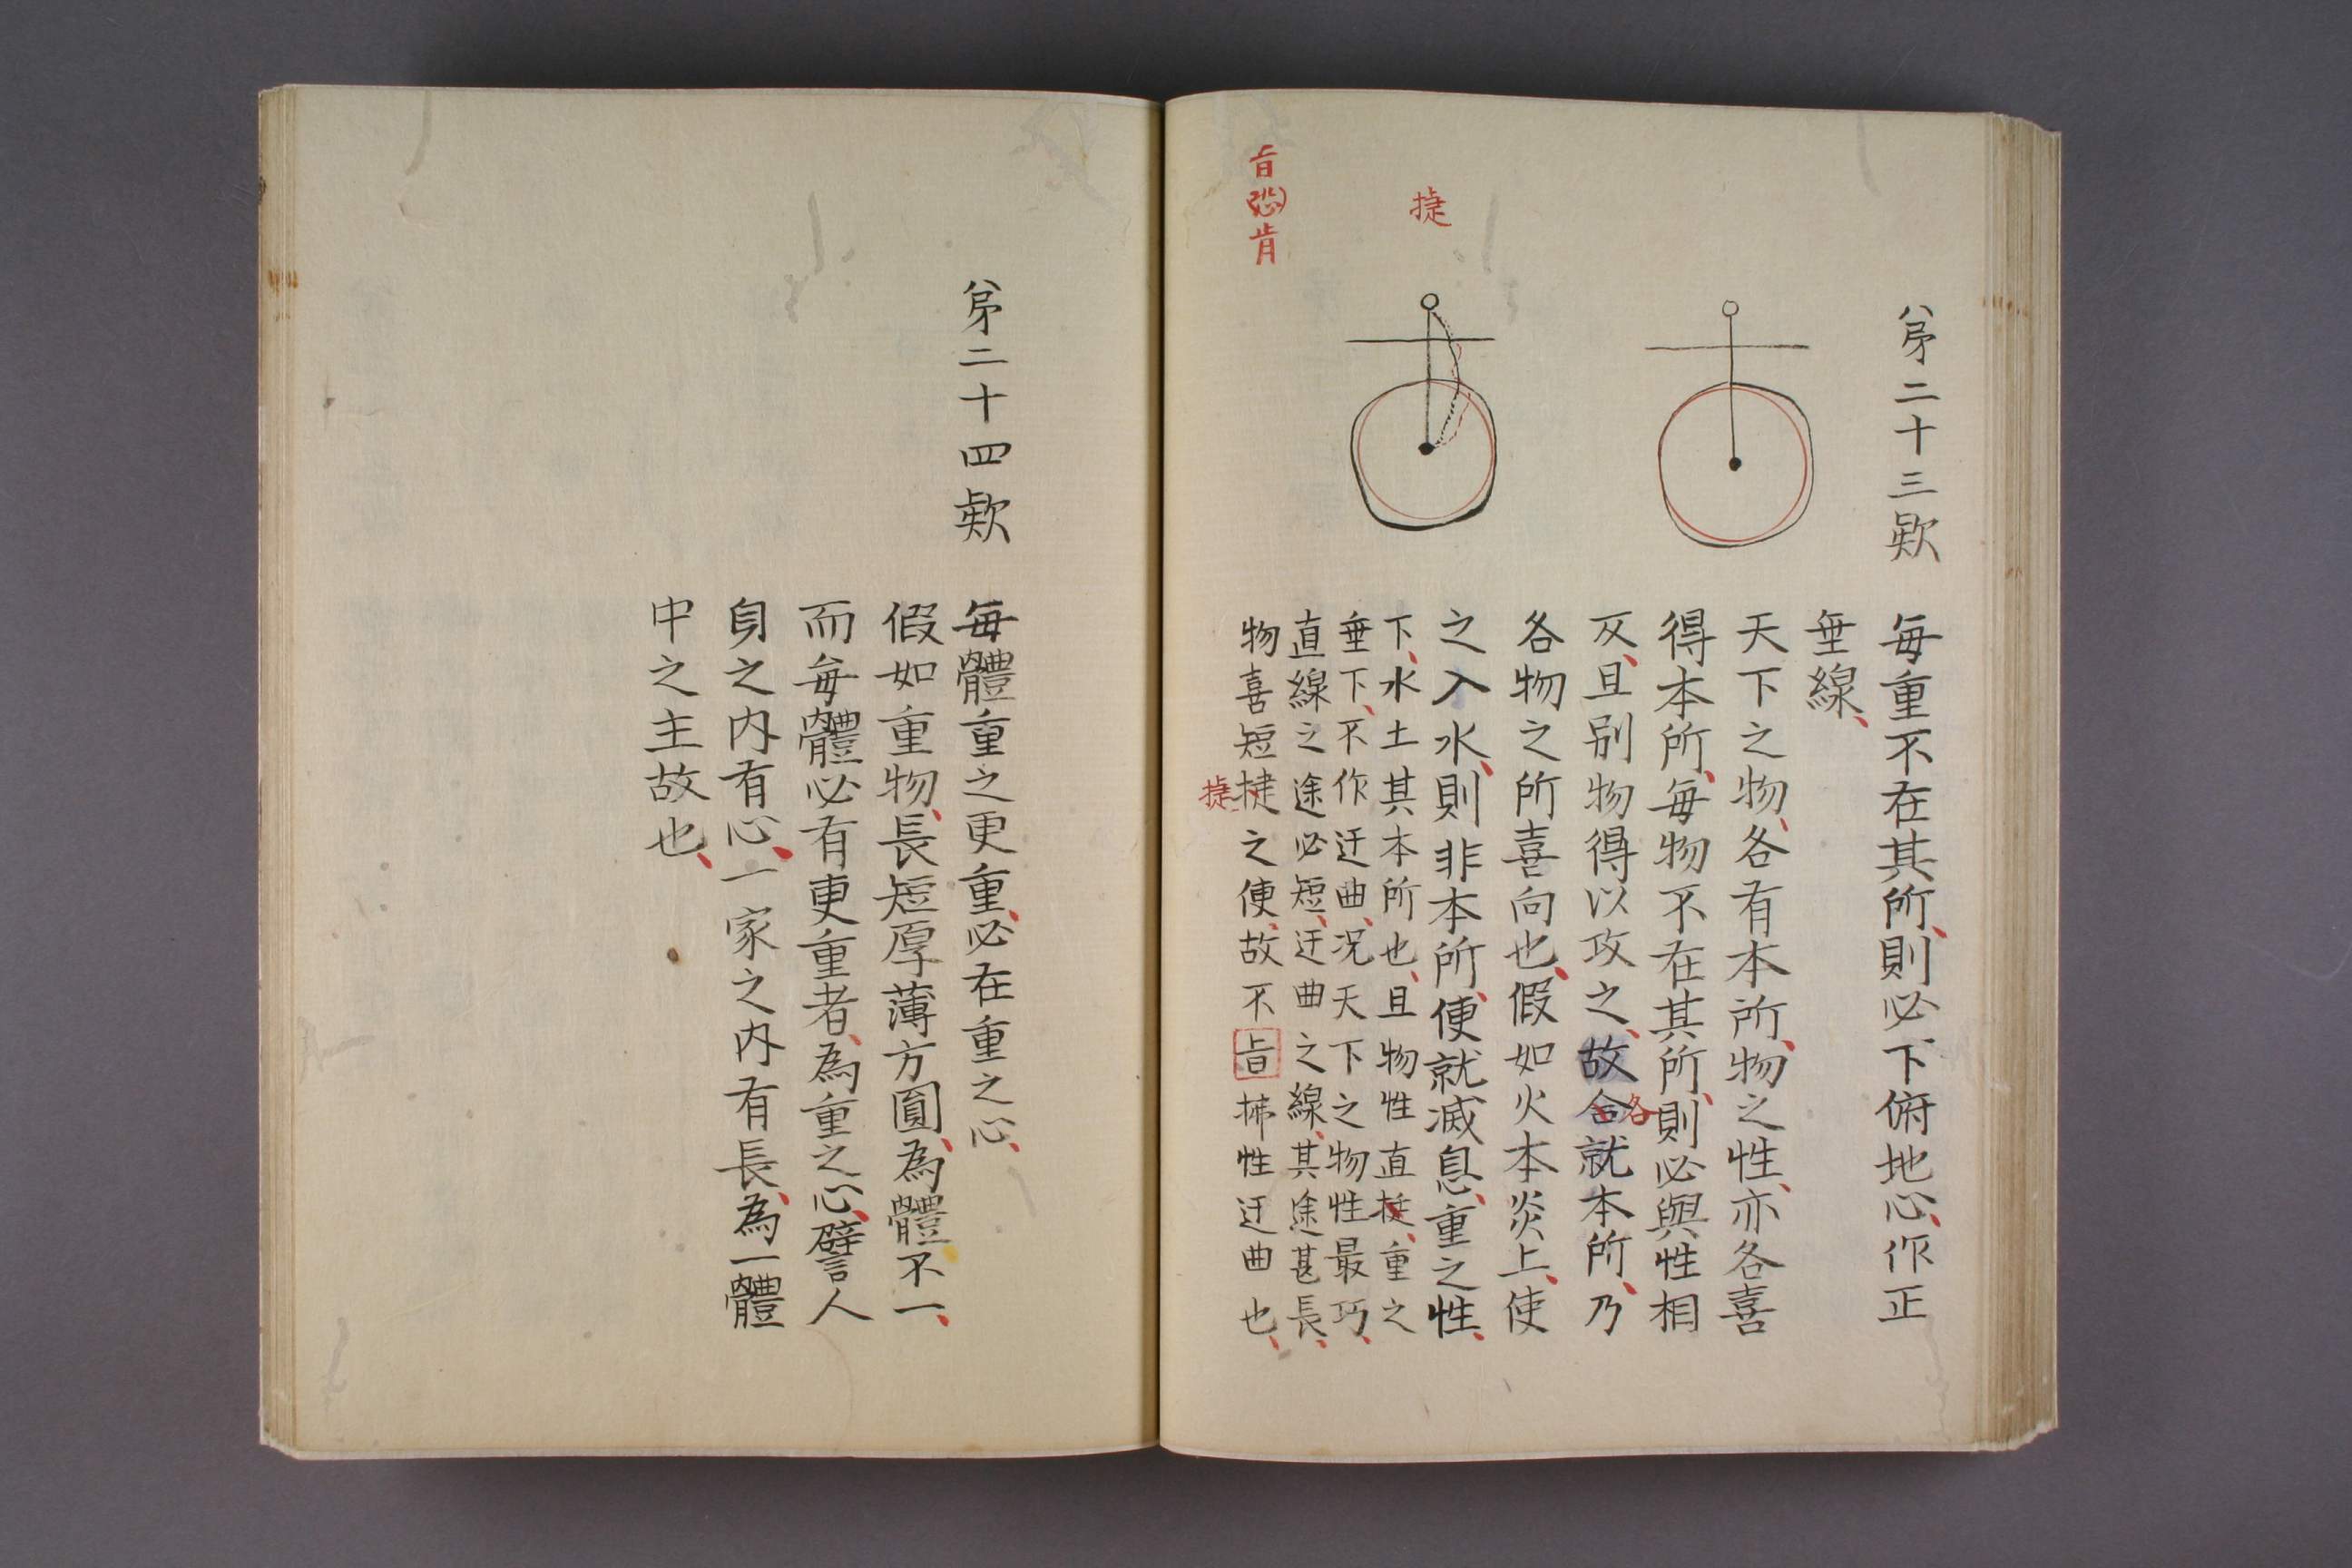 捷
旨恐肯
第二十三款
毎重不在其所、則必下俯地心、作正
垂線、
天下之物、各有本所、物之性、亦各喜
得本所、毎物不在其所、則必與性相
反、且别物得以攻之、故合就本所、乃
各
各物之所喜向也、假如火本炎上、使
之入水、則非本所、便就滅息、重之性、
下、水土其本所也、且物性直捷、重之
垂下、不作迂曲、况天下之物性最巧、
直線之途必短、迂曲之線、其途甚長、
物喜短捷之便、故不旨拂性迂曲也、
捷
第二十四款
毎體重之更重、必在重之心、
假如重物、長短厚薄方圓、為體不一、
而毎體必有更重者、為重之心、譬言人
身之内有心、一家之内有長、為一體
中之主故也、